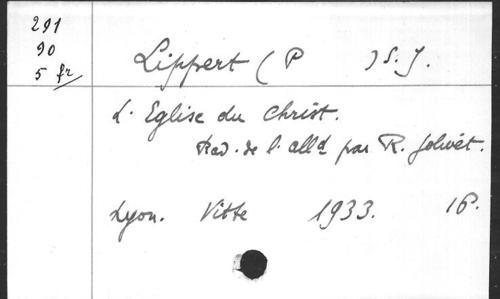 291
90
5 fr
Lippert (P ) S. J.
L'Eglise du Christ.
Trad. de l'alld par R. Jolivet.
Lyon. Vitte 1933. 16°.